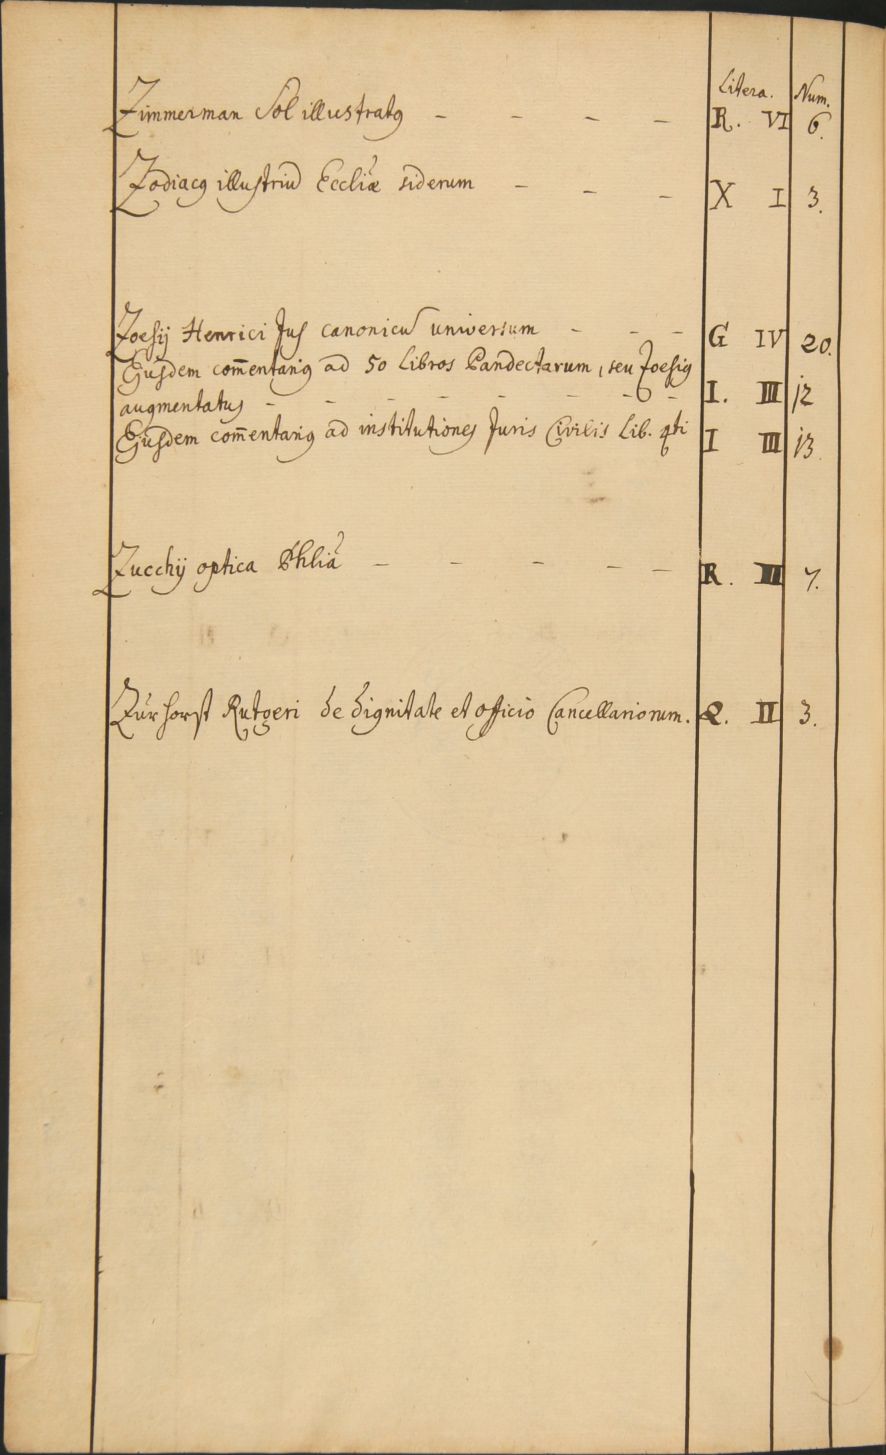 Litera. Num.
Zimmerman Sol illustratꝰ - - - - R. VI 6.
Zodiacꝰ illustriũ Eccliæ siderum - - - X I 3.
Zoesij Henrici Jus canonicũ universum - - - G IV 20.
Eiusdem com̄entariꝰ ad 50 libros Pandectarum, seu Zoesiꝰ
augmentatus - - - - - - - - I. III 12
Eiusdem com̄entariꝰ ad institutiones Juris Civilis Lib. 4ti I III 13.
Zucchij optica Phlia - - - - - R. III 7.
Zurhorst Rutgeri de dignitate et officio Cancellariorum. Q. II 3.